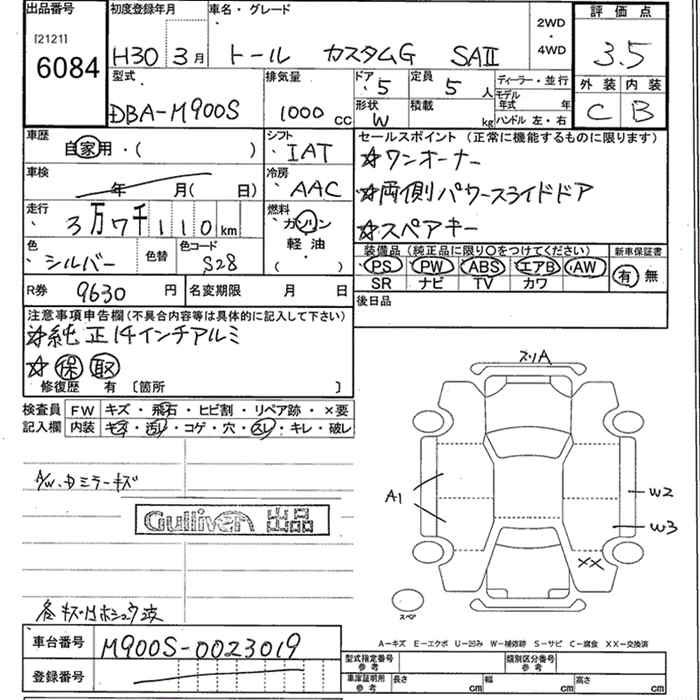 出品番号
[2121]
6084
初度登録年月
H30 3月
車名・グレード
トール カスタムG SAII
2WD
・
4WD
評価点
3.5
外装 内装
C B
型式
DBA-M900S
排気量
1000 cc
ドア
5
定員
5 人
形状
W
積載
kg
ディーラー・並行
モデル年式 年
ハンドル 左・右
車歴
自家用・( )
シフト
IAT
車検
年 月( 日)
冷房
AAC
走行
3万7千110 km
燃料
ガソリン
軽油
( )
色
シルバー
色替
色コード
S28
R券 9630 円
名変期限 月 日
セールスポイント(正常に機能するものに限ります)
☆ワンオーナー
☆両側パワースライドドア
☆スペアキー
装備品(純正品に限り○をつけてください)
PS PW ABS エアB AW
SR ナビ TV カワ
新車保証書
有 無
後日品
注意事項申告欄(不具合内容等は具体的に記入して下さい)
☆純正14インチアルミ
☆保 取
修復歴 有 〔箇所 〕
検査員記入欄
FW キズ・飛石・ヒビ割・リペア跡・×要
内装 キズ・汚レ・コゲ・穴・スレ・キレ・破レ
A/W、Dミラーキズ
Gulliver 出品
スリA
A1
W2
W3
XX
スペア
車台番号 M900S-0023019
登録番号
A-キズ E-エクボ U-凹み W-補修跡 S-サビ C-腐食 XX-交換済
型式指定番号 参考
類別区分番号 参考
車庫証明用 参考
長さ cm 幅 cm 高さ cm